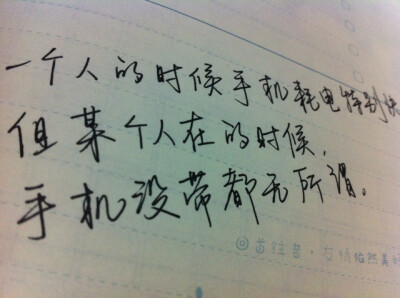 一个人的时候手机耗电特别快
但某个人在的时候，
手机没带都无所谓。